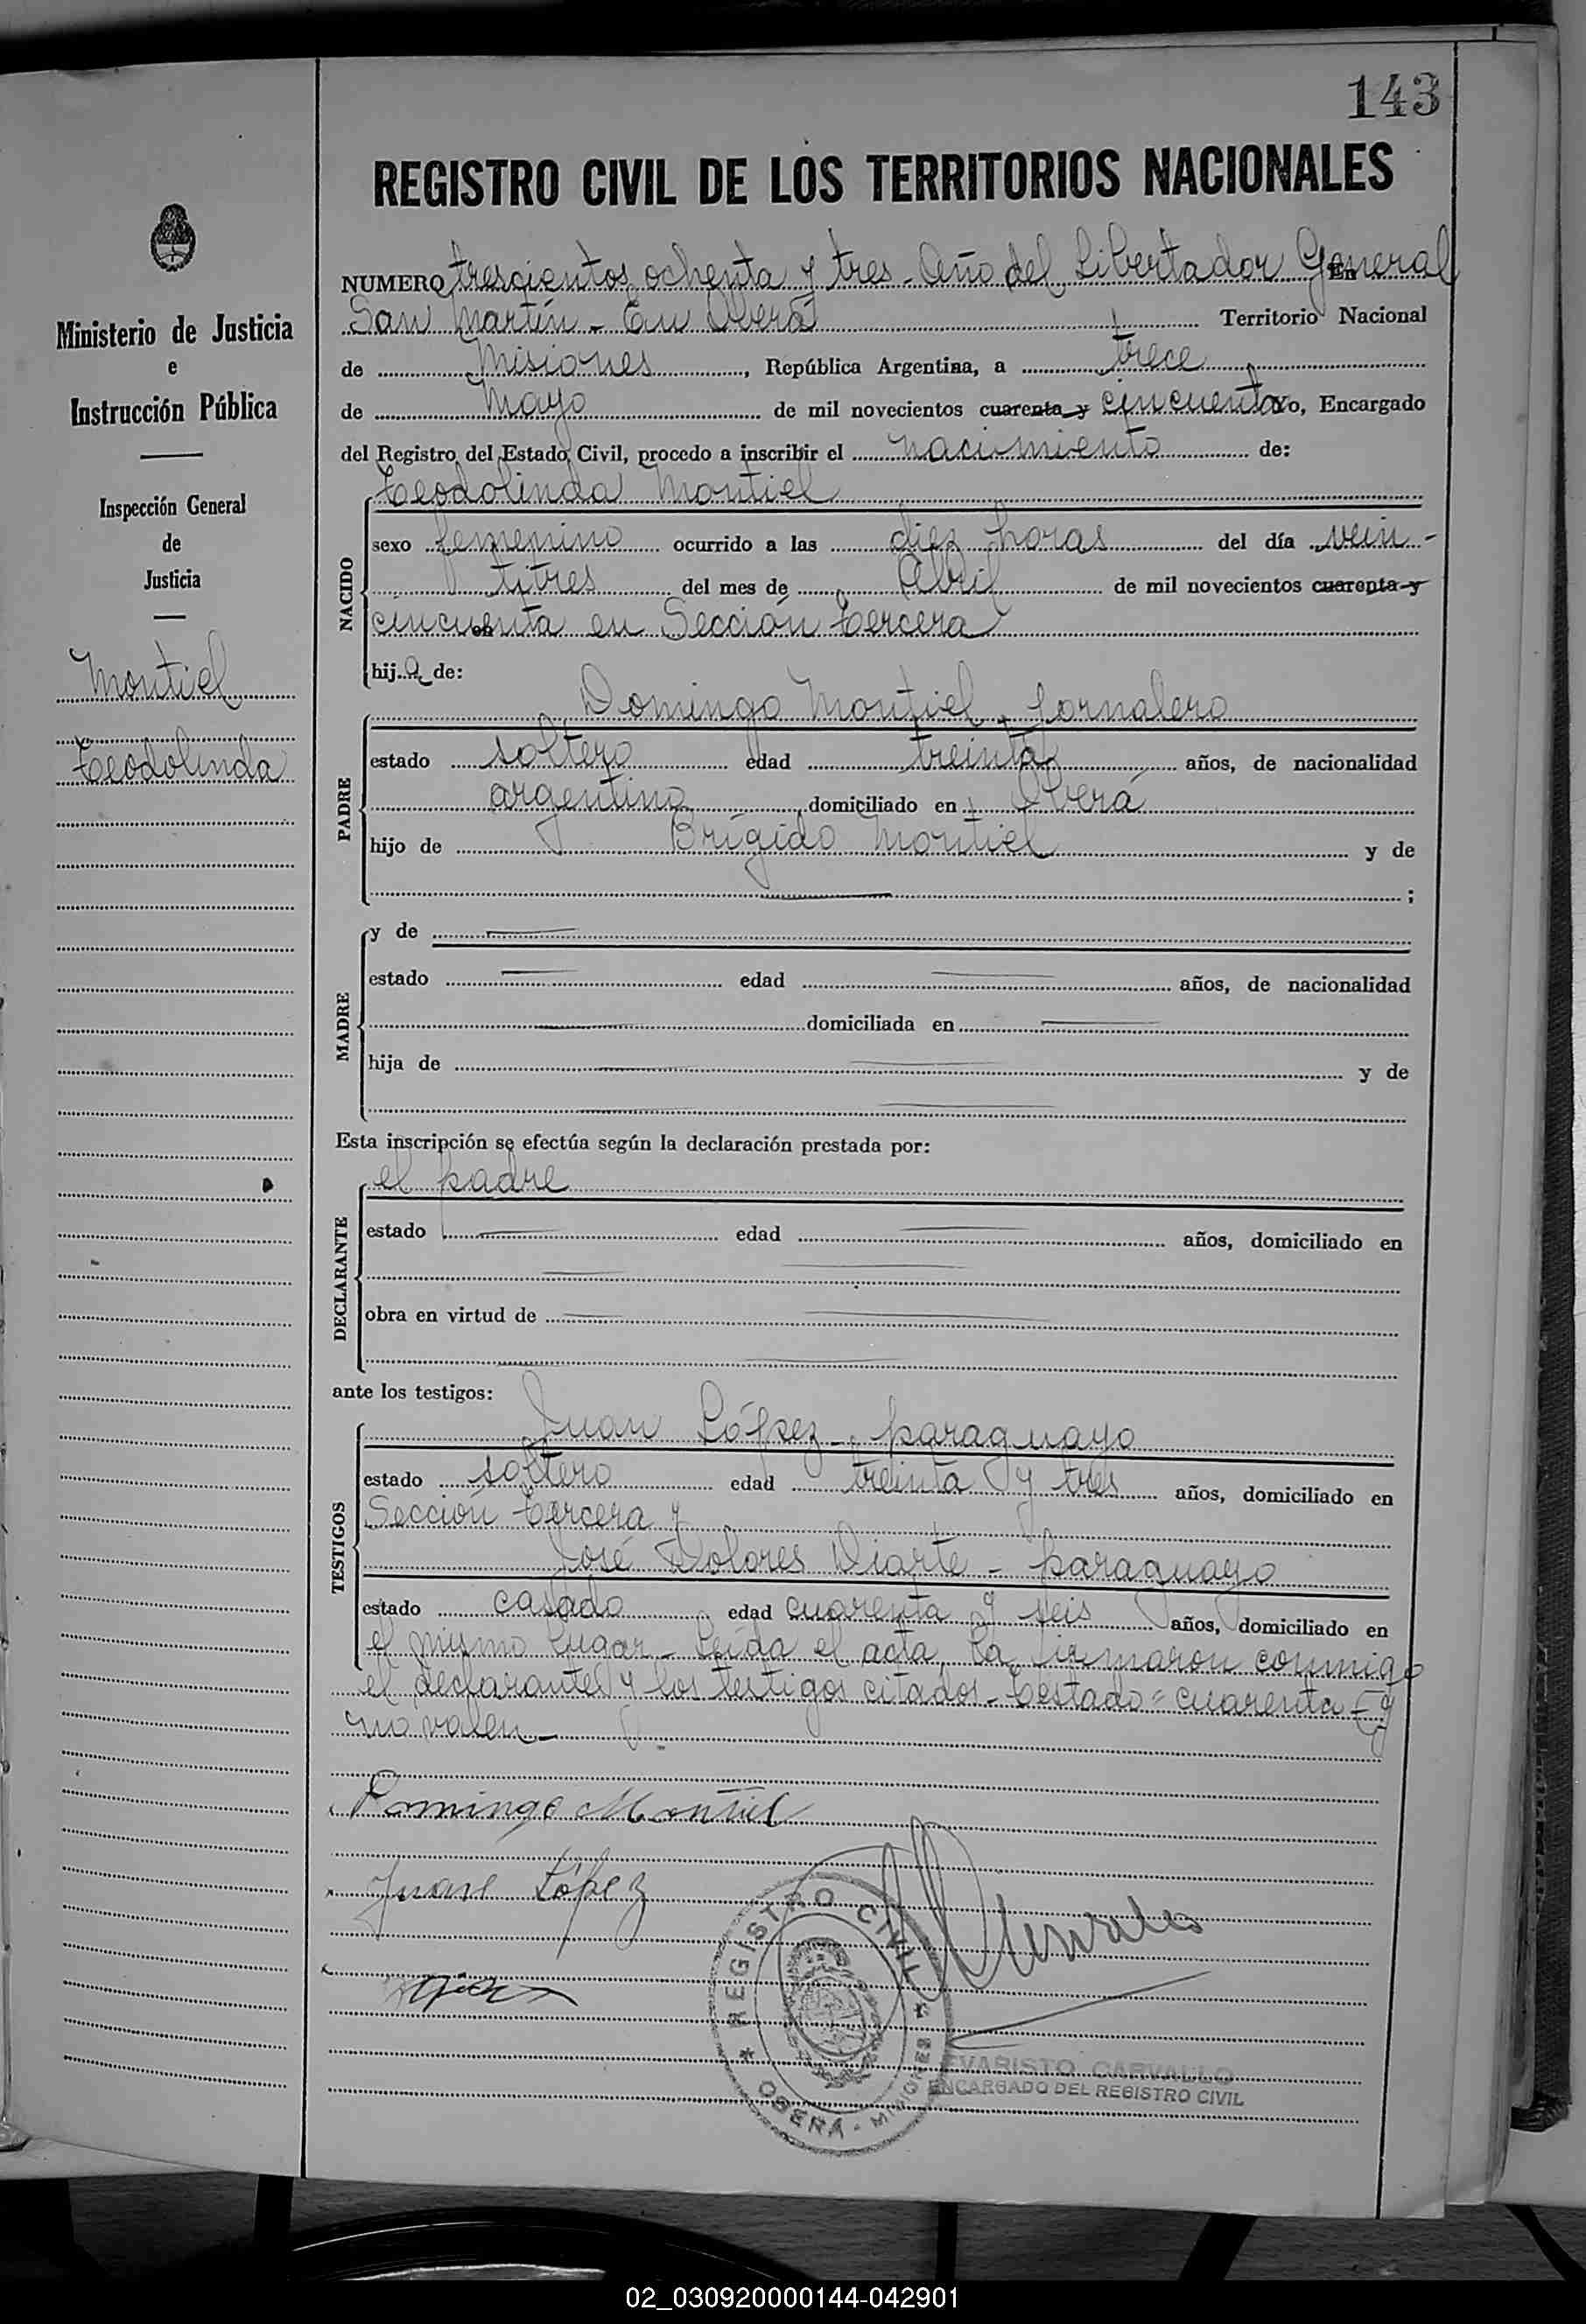 143
REGISTRO CIVIL DE LOS TERRITORIOS NACIONALES
Ministerio de Justicia
e
Instrucción Pública
Inspección General
de
Justicia
Montiel
Teodolinda
NUMERO trescientos ochenta y tres - Año del Libertador General En
San Martín - En Oberá Territorio Nacional
de Misiones, República Argentina, a trece
de Mayo de mil novecientos cuarenta y cincuenta Yo, Encargado
del Registro del Estado Civil, procedo a inscribir el nacimiento de:
Teodolinda Montiel
NACIDO
sexo femenino ocurrido a las diez horas del día vein-
titres del mes de Abril de mil novecientos cuarenta y
cincuenta en Sección tercera
hija de:
PADRE
Domingo Montiel, jornalero
estado soltero edad treinta años, de nacionalidad
argentino domiciliado en Oberá
hijo de Brígido Montiel y de
;
MADRE
y de
estado edad años, de nacionalidad
domiciliada en
hija de y de
Esta inscripción se efectúa según la declaración prestada por:
DECLARANTE
el padre
estado edad años, domiciliado en
obra en virtud de
ante los testigos:
TESTIGOS
Juan López - paraguayo
estado soltero edad treinta y tres años, domiciliado en
Sección tercera y
José Dolores Diarte - paraguayo
estado casado edad cuarenta y seis años, domiciliado en
el mismo lugar - Leída el acta, la firmaron conmigo
el declarante y los testigos citados - Testado = cuarenta - y
no valen -
Domingo Montiel
Juan López
REGISTRO CIVIL
OBERÁ - MISIONES
EVARISTO CARVALLO
ENCARGADO DEL REGISTRO CIVIL
02_030920000144-042901